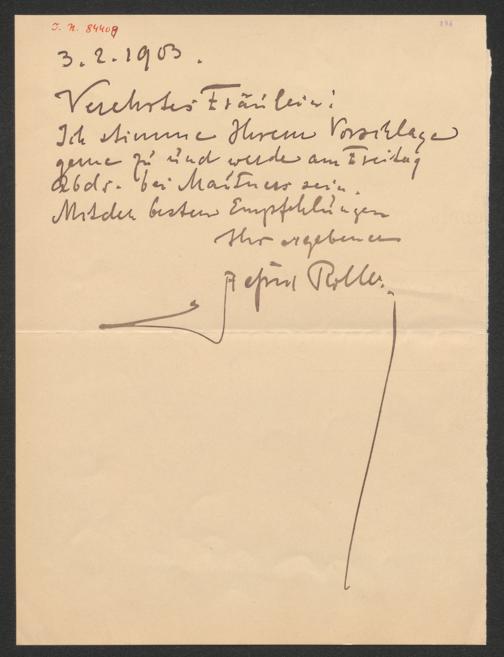 I. N. 84409
3.2.1903.
Verehrtes Fräulein!
Ich stimme Ihrem Vorschlage
gerne zu und werde am Freitag
Abds. bei Mautners sein.
Mit den besten Empfehlungen
Ihr ergebener
Alfred Roller.